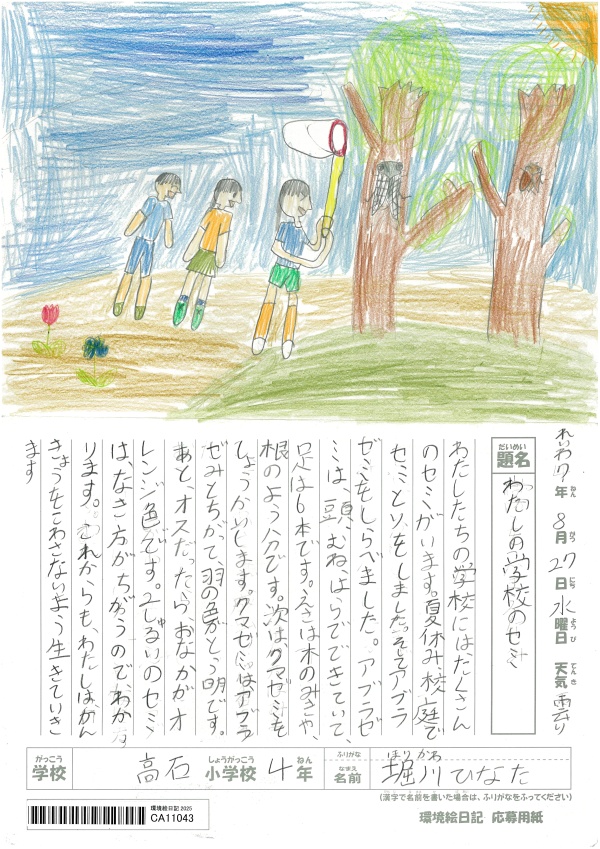 れいわ7年ねん 8月がつ 27日にち 水曜日ようび 天気てんき 曇り
だいめい
題名
わたしの学校のセミ
わたしたちの学校にはたくさん
のセミがいます。夏休み、校庭で
セミとりをしました。そしてアブラ
ゼミをしらべました。アブラゼ
ミは、頭、むね、はらでできていて、
足は6本です。えさは木のみきや、
根のような分です。次は、クマゼミを
しょうかいします。クマゼミはアブラ
ゼミとちがって、羽の色がとう明です。
あと、オスだったら、おなかがオ
レンジ色です。2しゅるいのセミ
は、なき方がちがうので、わか
ります。これからも、わたしはかん
きょうをこわさないよう生きていき
ます
がっこう
学校
高石
しょうがっこう
小学校
4
ねん
年
ふりがな
なまえ
名前
ほりかわ
堀川ひなた
(漢字で名前を書いた場合は、ふりがなをふってください)
環境絵日記 2025
CA11043
環境絵日記 応募用紙